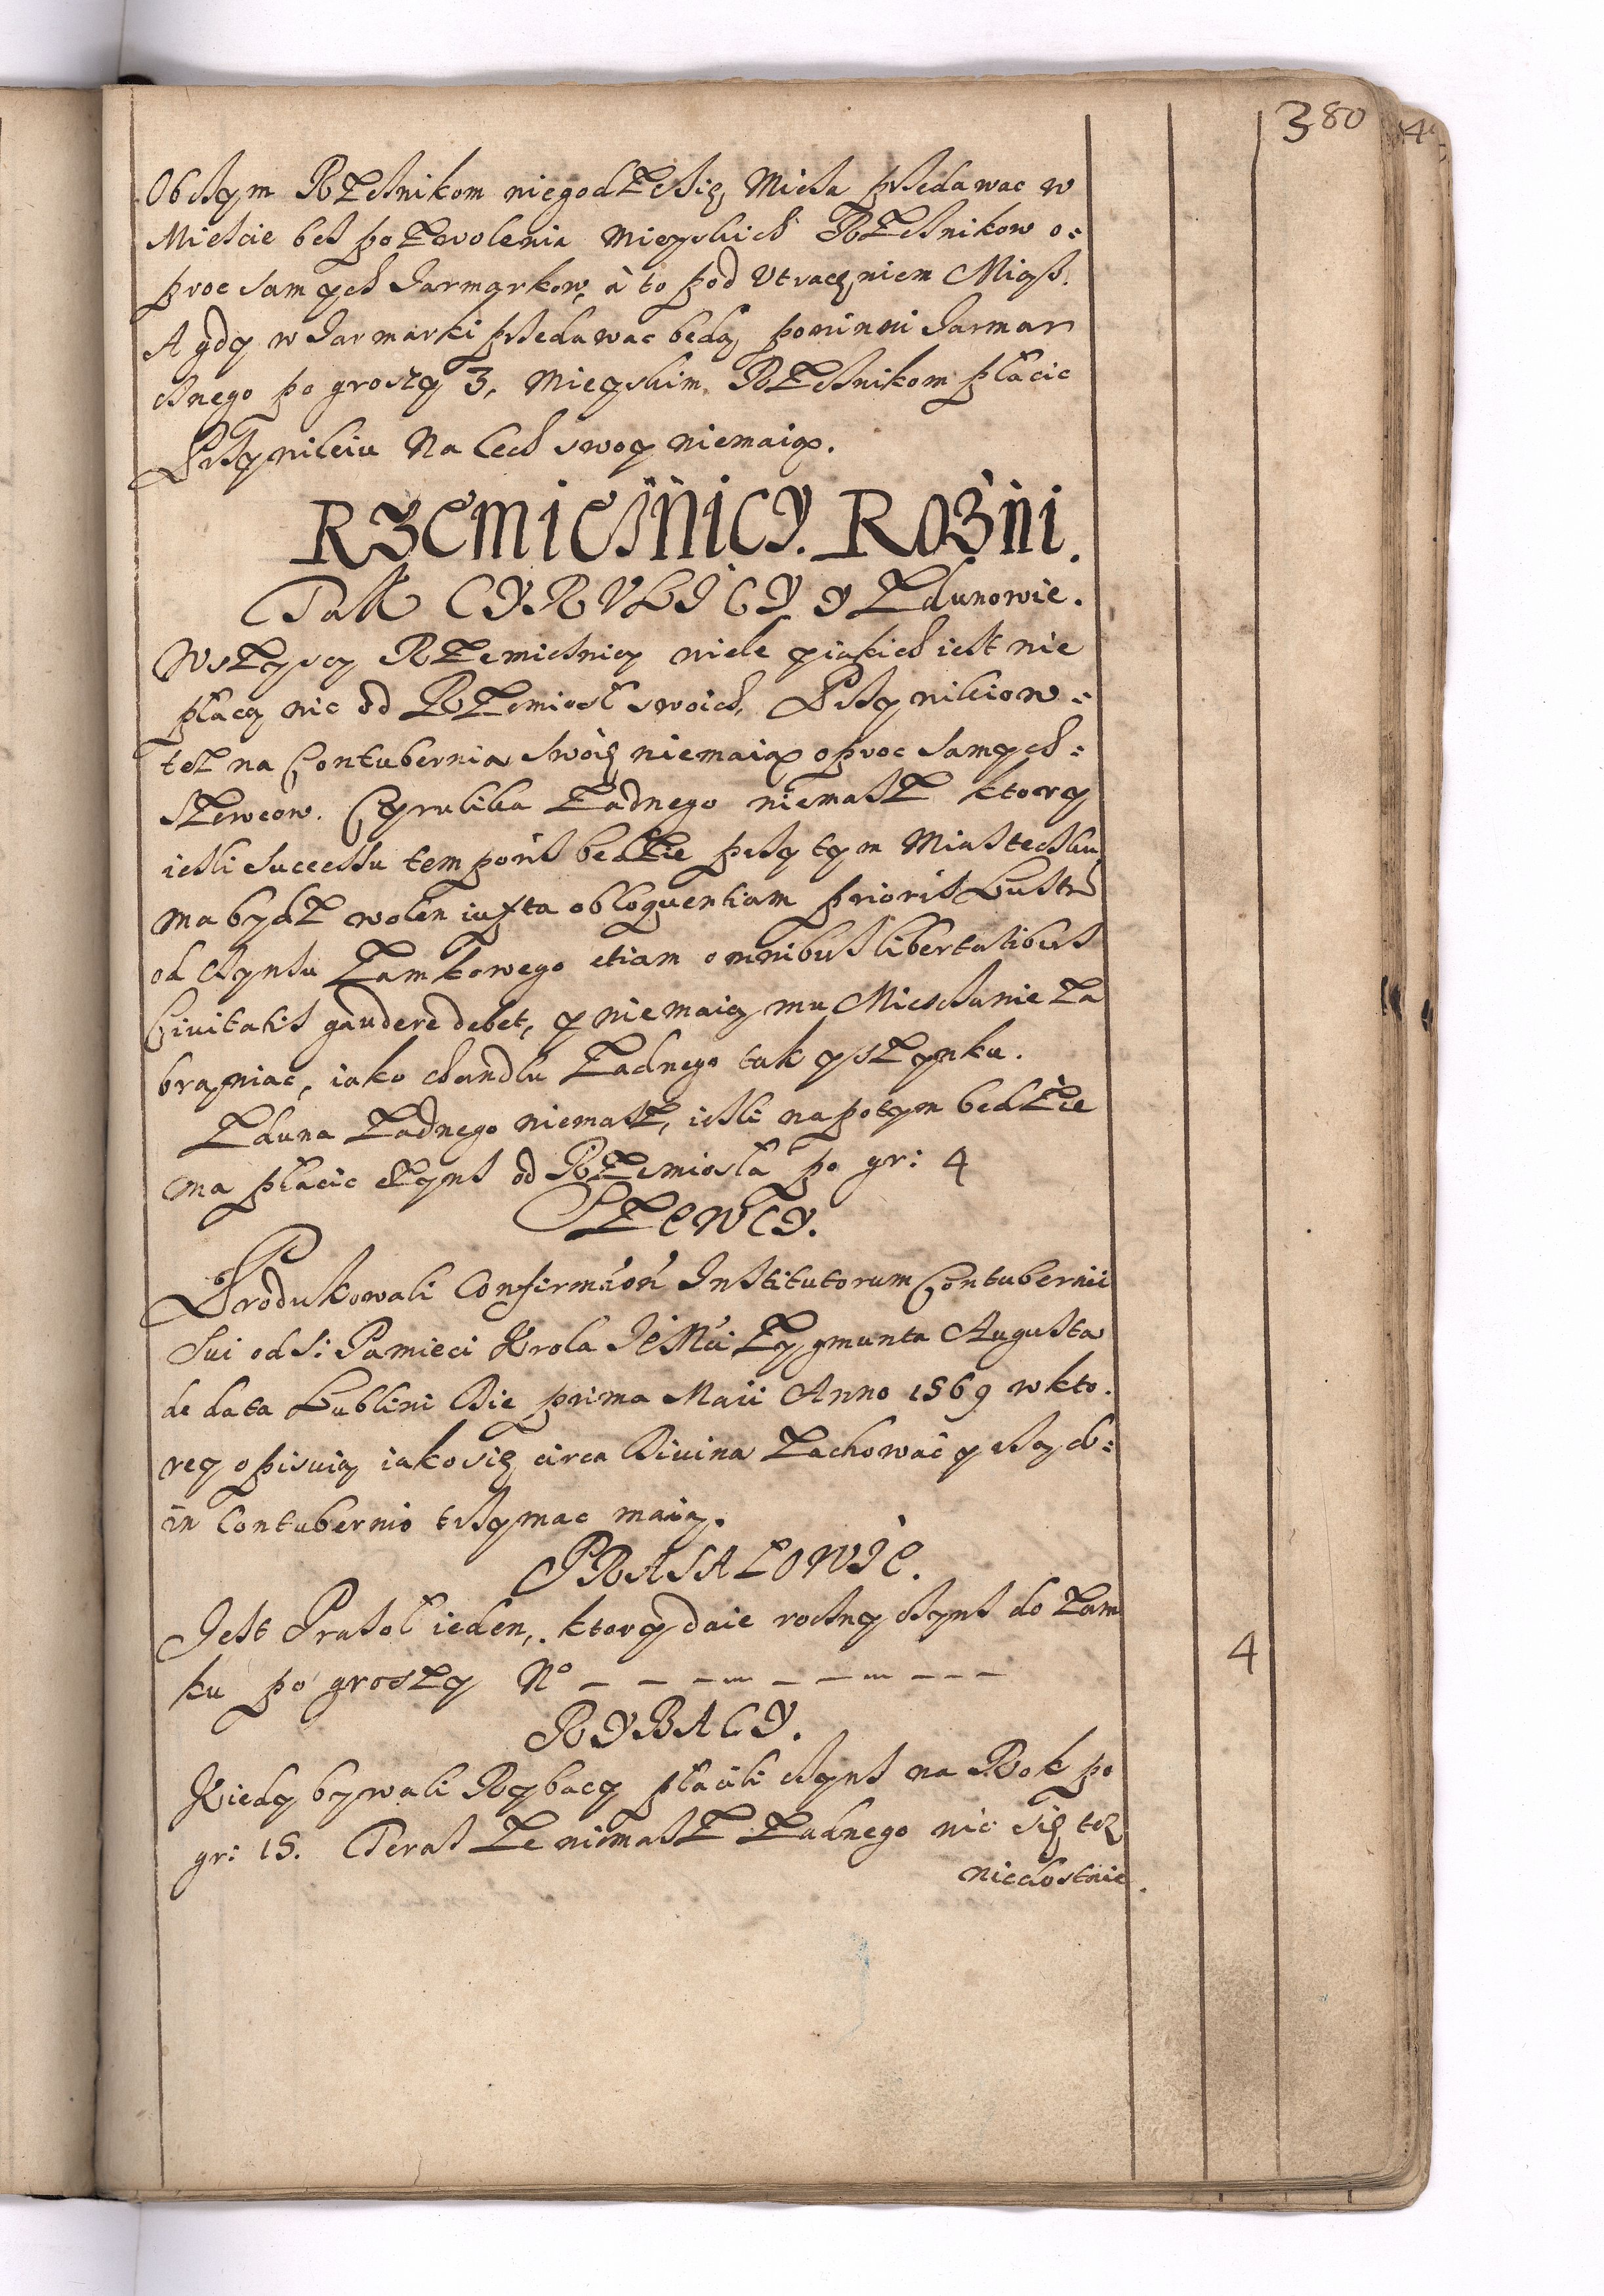 380
Obcżym Rzeżnikom niegodzi się Mięsa przedawac w
Mieście bes pozwolenia Mieyskich Rzeznikow o=
proc samych Jarmarkow, à to pod Vtraceniem Mięs.
A gdy w Jarmarki przedawac będą powinni Jarmar
cznego po groszy 3, Mieyskim Rzeznikom płacic
Przywileiu Na Cech swoy niemaią.
RZEMIESNICY. ROZNI.
Tak CYRVLICY y Zdunowie.
Wszyscy Rzemiesnicy wiele y iakich iest nie
płacą nic od Rzemiosł swoich, Przywileiow=
tez na Contubernia swoie niemaią oproc samych=
Szewcow. Cyrulika Zadnego niemasz ktory
iesli successu temporis będzie przy tym Miasteczku
ma bydz wolen iuxta obloquentiam prioris Lustrs
od czynsu Zamkowego etiam omnibus libertatibus
Ciuitatis gaudere debet, y niemaią mu Miesczanie za
braniac, iako chandlu Zadnego tak y szynku.
Zduna Zadnego niemasz, iesli napotym będzie
ma płacic czyns od Rzemiosła po gr: 4
SZEWCY.
Produkowali Confirmaón Institutorum Contubernii
Sui od S: Pamieci Krola JeMci Zygmunta Augusta
de data Lublini Die prima Maii Anno 1569 w kto.
rey opisuią iako się circa Diuina zachowac y czych=
in Contubernio trzymac maią.
PRASALOWIE.
Jest Prasoł ieden, ktory daie roczny czyns do Zam
ku po groszy No — — — — — — — — — 4
RYBACY.
Kiedy bywali Rybacy płacili czyns na Rok po
gr: 15. Teras ze niemasz Zadnego nic się tez
niedostaie.